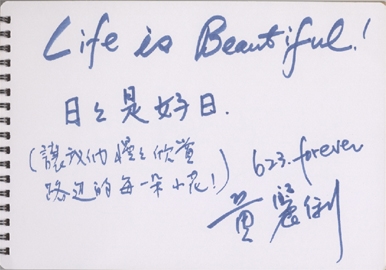 Life is Beautiful!
日々是好日.
(讓我们慢々欣賞
路边的每一朵小花!)
623.forever
黃麗俐